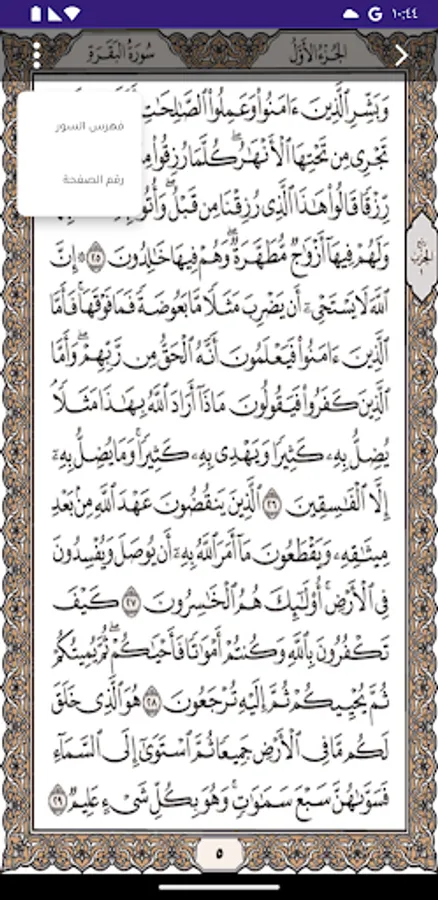 ١٠:٤٤
الجُزءُ الأَوَّلُ
سُورَةُ البَقَرَةِ
فهرس السور
رقم الصفحة
وَبَشِّرِ الَّذِينَ ءَامَنُوا وَعَمِلُوا الصَّالِحَاتِ
تَجْرِي مِن تَحْتِهَا الْأَنْهَارُ ۖ كُلَّمَا رُزِقُوا
رِّزْقًا قَالُوا هَٰذَا الَّذِي رُزِقْنَا مِن قَبْلُ ۖ وَأُتُوا
وَلَهُمْ فِيهَا أَزْوَاجٌ مُّطَهَّرَةٌ ۖ وَهُمْ فِيهَا خَالِدُونَ ٢٥ ۞ إِنَّ
اللَّهَ لَا يَسْتَحْيِۦٓ أَن يَضْرِبَ مَثَلًا مَّا بَعُوضَةً فَمَا فَوْقَهَا ۚ فَأَمَّا
الَّذِينَ ءَامَنُوا فَيَعْلَمُونَ أَنَّهُ الْحَقُّ مِن رَّبِّهِمْ ۖ وَأَمَّا
الَّذِينَ كَفَرُوا فَيَقُولُونَ مَاذَا أَرَادَ اللَّهُ بِهَٰذَا مَثَلًا ۘ
يُضِلُّ بِهِۦ كَثِيرًا وَيَهْدِي بِهِۦ كَثِيرًا ۚ وَمَا يُضِلُّ بِهِۦٓ
إِلَّا الْفَاسِقِينَ ٢٦ الَّذِينَ يَنقُضُونَ عَهْدَ اللَّهِ مِنۢ بَعْدِ
مِيثَٰقِهِۦ وَيَقْطَعُونَ مَا أَمَرَ اللَّهُ بِهِۦٓ أَن يُوصَلَ وَيُفْسِدُونَ
فِي الْأَرْضِ ۚ أُولَٰئِكَ هُمُ الْخَاسِرُونَ ٢٧ كَيْفَ
تَكْفُرُونَ بِاللَّهِ وَكُنتُمْ أَمْوَاتًا فَأَحْيَاكُمْ ۖ ثُمَّ يُمِيتُكُمْ
ثُمَّ يُحْيِيكُمْ ثُمَّ إِلَيْهِ تُرْجَعُونَ ٢٨ هُوَ الَّذِي خَلَقَ
لَكُم مَّا فِي الْأَرْضِ جَمِيعًا ثُمَّ اسْتَوَىٰ إِلَى السَّمَاءِ
فَسَوَّىٰهُنَّ سَبْعَ سَمَٰوَٰتٍ ۚ وَهُوَ بِكُلِّ شَيْءٍ عَلِيمٌ ٢٩
٥